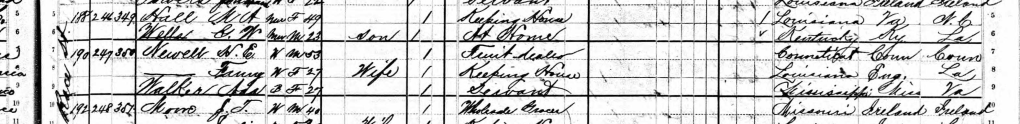 Louisiana Ireland Ireland
188 246 349 Hall M. A. F 49 1 Keeping House 1 Louisiana Va N.C. 5
6 Wells G. W. M 23 Son 1 At Home Kentucky Ky La 6
7 190 247 350 Newell H. E. W M 53 1 Fruit dealer Connecticut Conn Conn 7
8 Fanny W F 27 Wife 1 Keeping House Louisiana Eng. La 8
9 Walker Ada B F 27 1 Servant Mississippi Miss Va 9
10 192 248 351 Moore J. T. W M 40 1 Wholesale Grocer Missouri Ireland Ireland 10
11